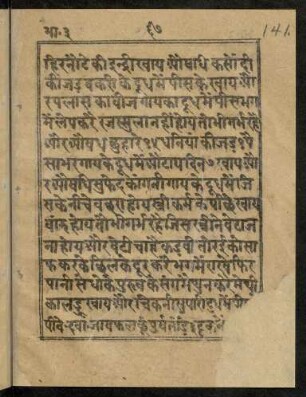 भा.३ ६७ 141.
हिरनौटे की इन्द्री खाय औषधि कसोंदी
की जड बकरी के दूध में पीस के खाय औ
र पलास का बीज गाय का दूध में पीस भग
में लेप करे रजस्वला न ही होय तो भी गर्भ रहे
और औषध छुहारा १४ धनियां की जड १पै
सा भर गाय के दूध में औटाय दिन ७ खाय औ
र औषधि सुफेद कांगनी गाय के दूध में जि
स के नीचे बछरा होय खी कर्म के पीछे खाय
बांझ होय तो भी गर्भ रहे जिस स्त्री ने बेटा ज
ना होय और बेटी चाहे कडवी तोरई को सा
फ करके छिलके दूर करे भग में राखे फिर
पानी से धोके पुरुष के संग मैथुन करे
का लड्डू खाय और चिकनी सुपारी दूध में
पीवे